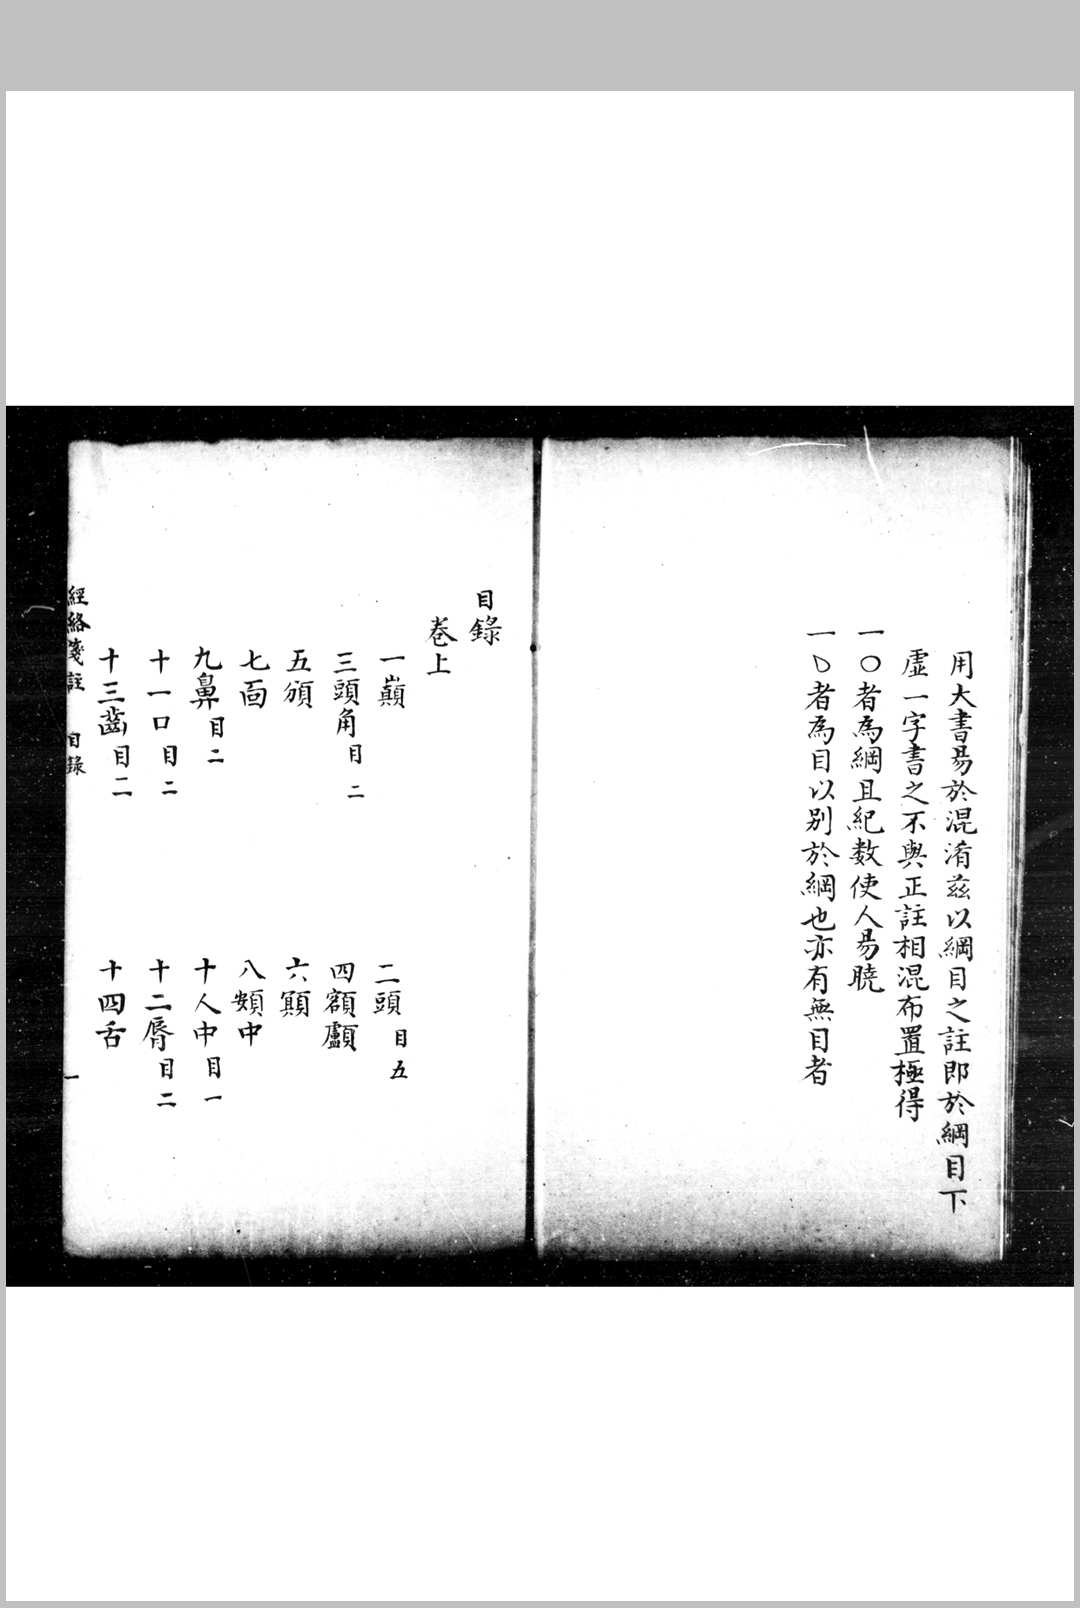 用大書易於混淆茲以綱目之註即於綱目下
虛一字書之不與正註相混布置極得
一〇者為綱且紀数使人易曉
一D者為目以别於綱也亦有無目者
目錄
卷上
一巔 二頭目五
三頭角目二 四額顱
五頄 六顠
七面 八頰中
九鼻目二 十人中目一
十一口目二 十二唇目二
十三齒目二 十四舌
經絡箋註 目錄 一